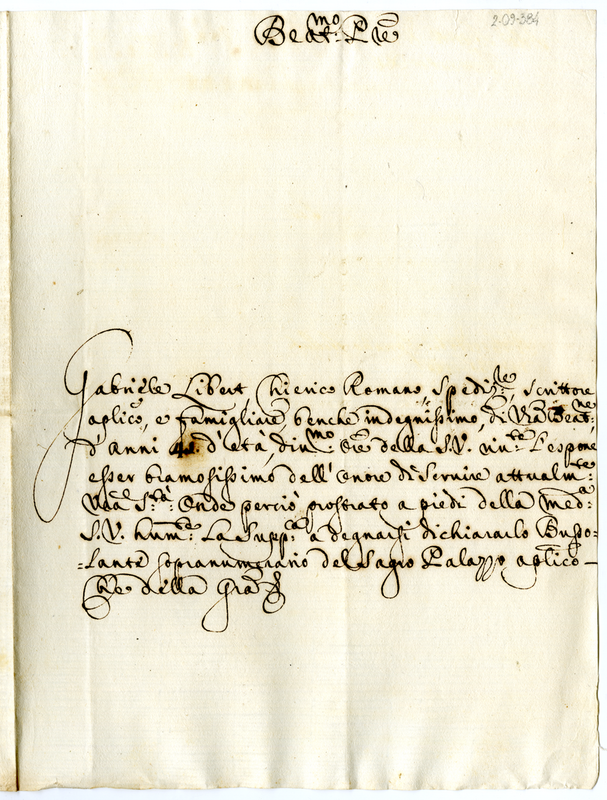 2-09-384
Beat.mo P're
Gabriele Libert, Chierico Romano Spediz.re, scrittore
aplico, e famigliare, benche indegnissimo, di V'ra Beat.ne
d'anni d'età, della S.V. espone
esser bramosissimo dell'Onore di Servire attualm.te
V'ra S.tà. Onde perciò prostrato a piedi della med.a
S.V. hum.te La Supp.ca a degnarsi dichiararlo Busso=
=lante sopranumerario del Sagro Palazzo aplico
Che della Gra'